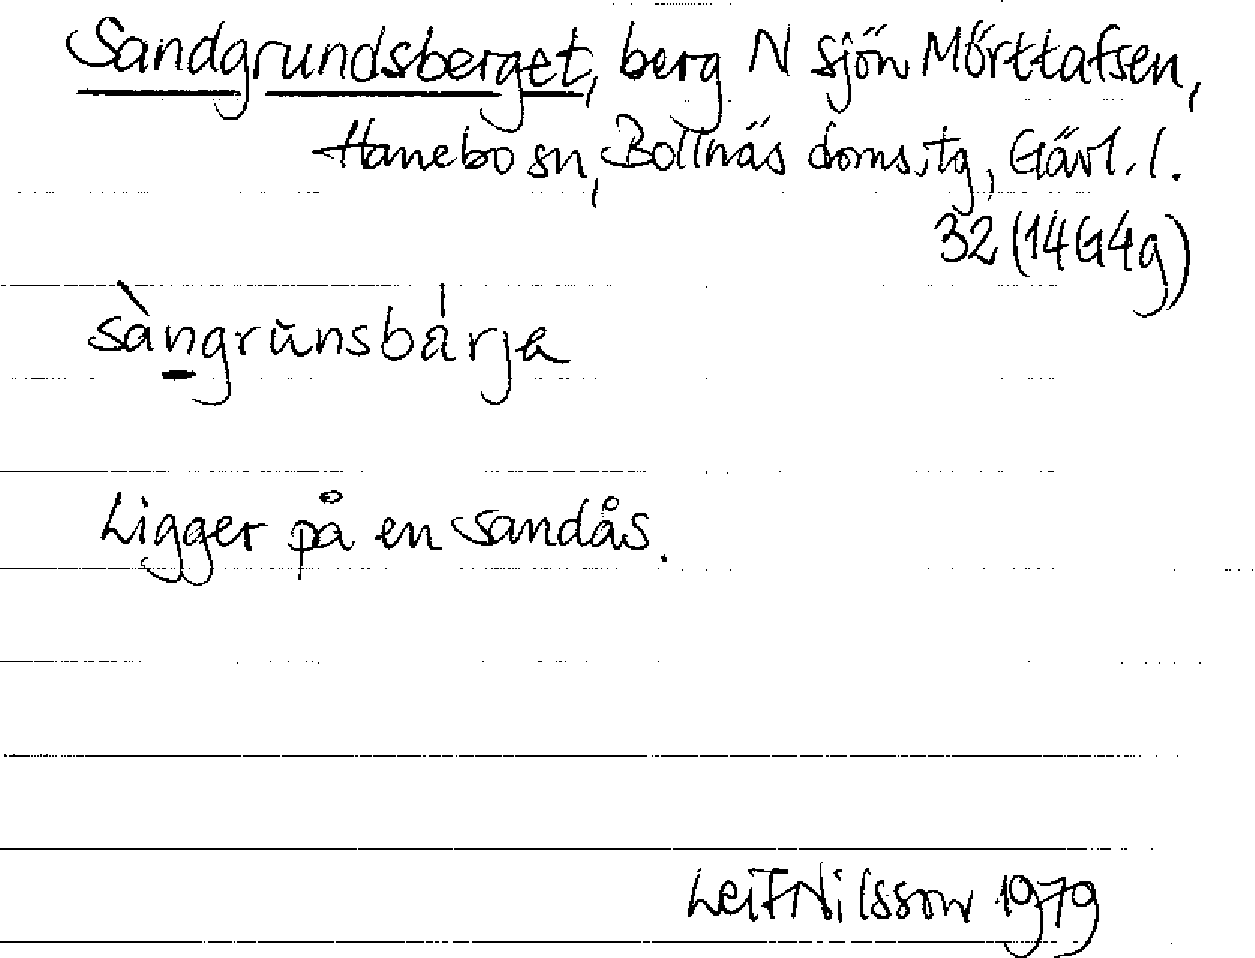 Sandgrundsberget, berg N sjön Mörttafsen,
Hanebo sn, Bollnäs doms.tg, Gävl. l.
32 (14G4g)
sàn̲grŭnsbárja
Ligger på en sandås.
Leif Nilsson 1979